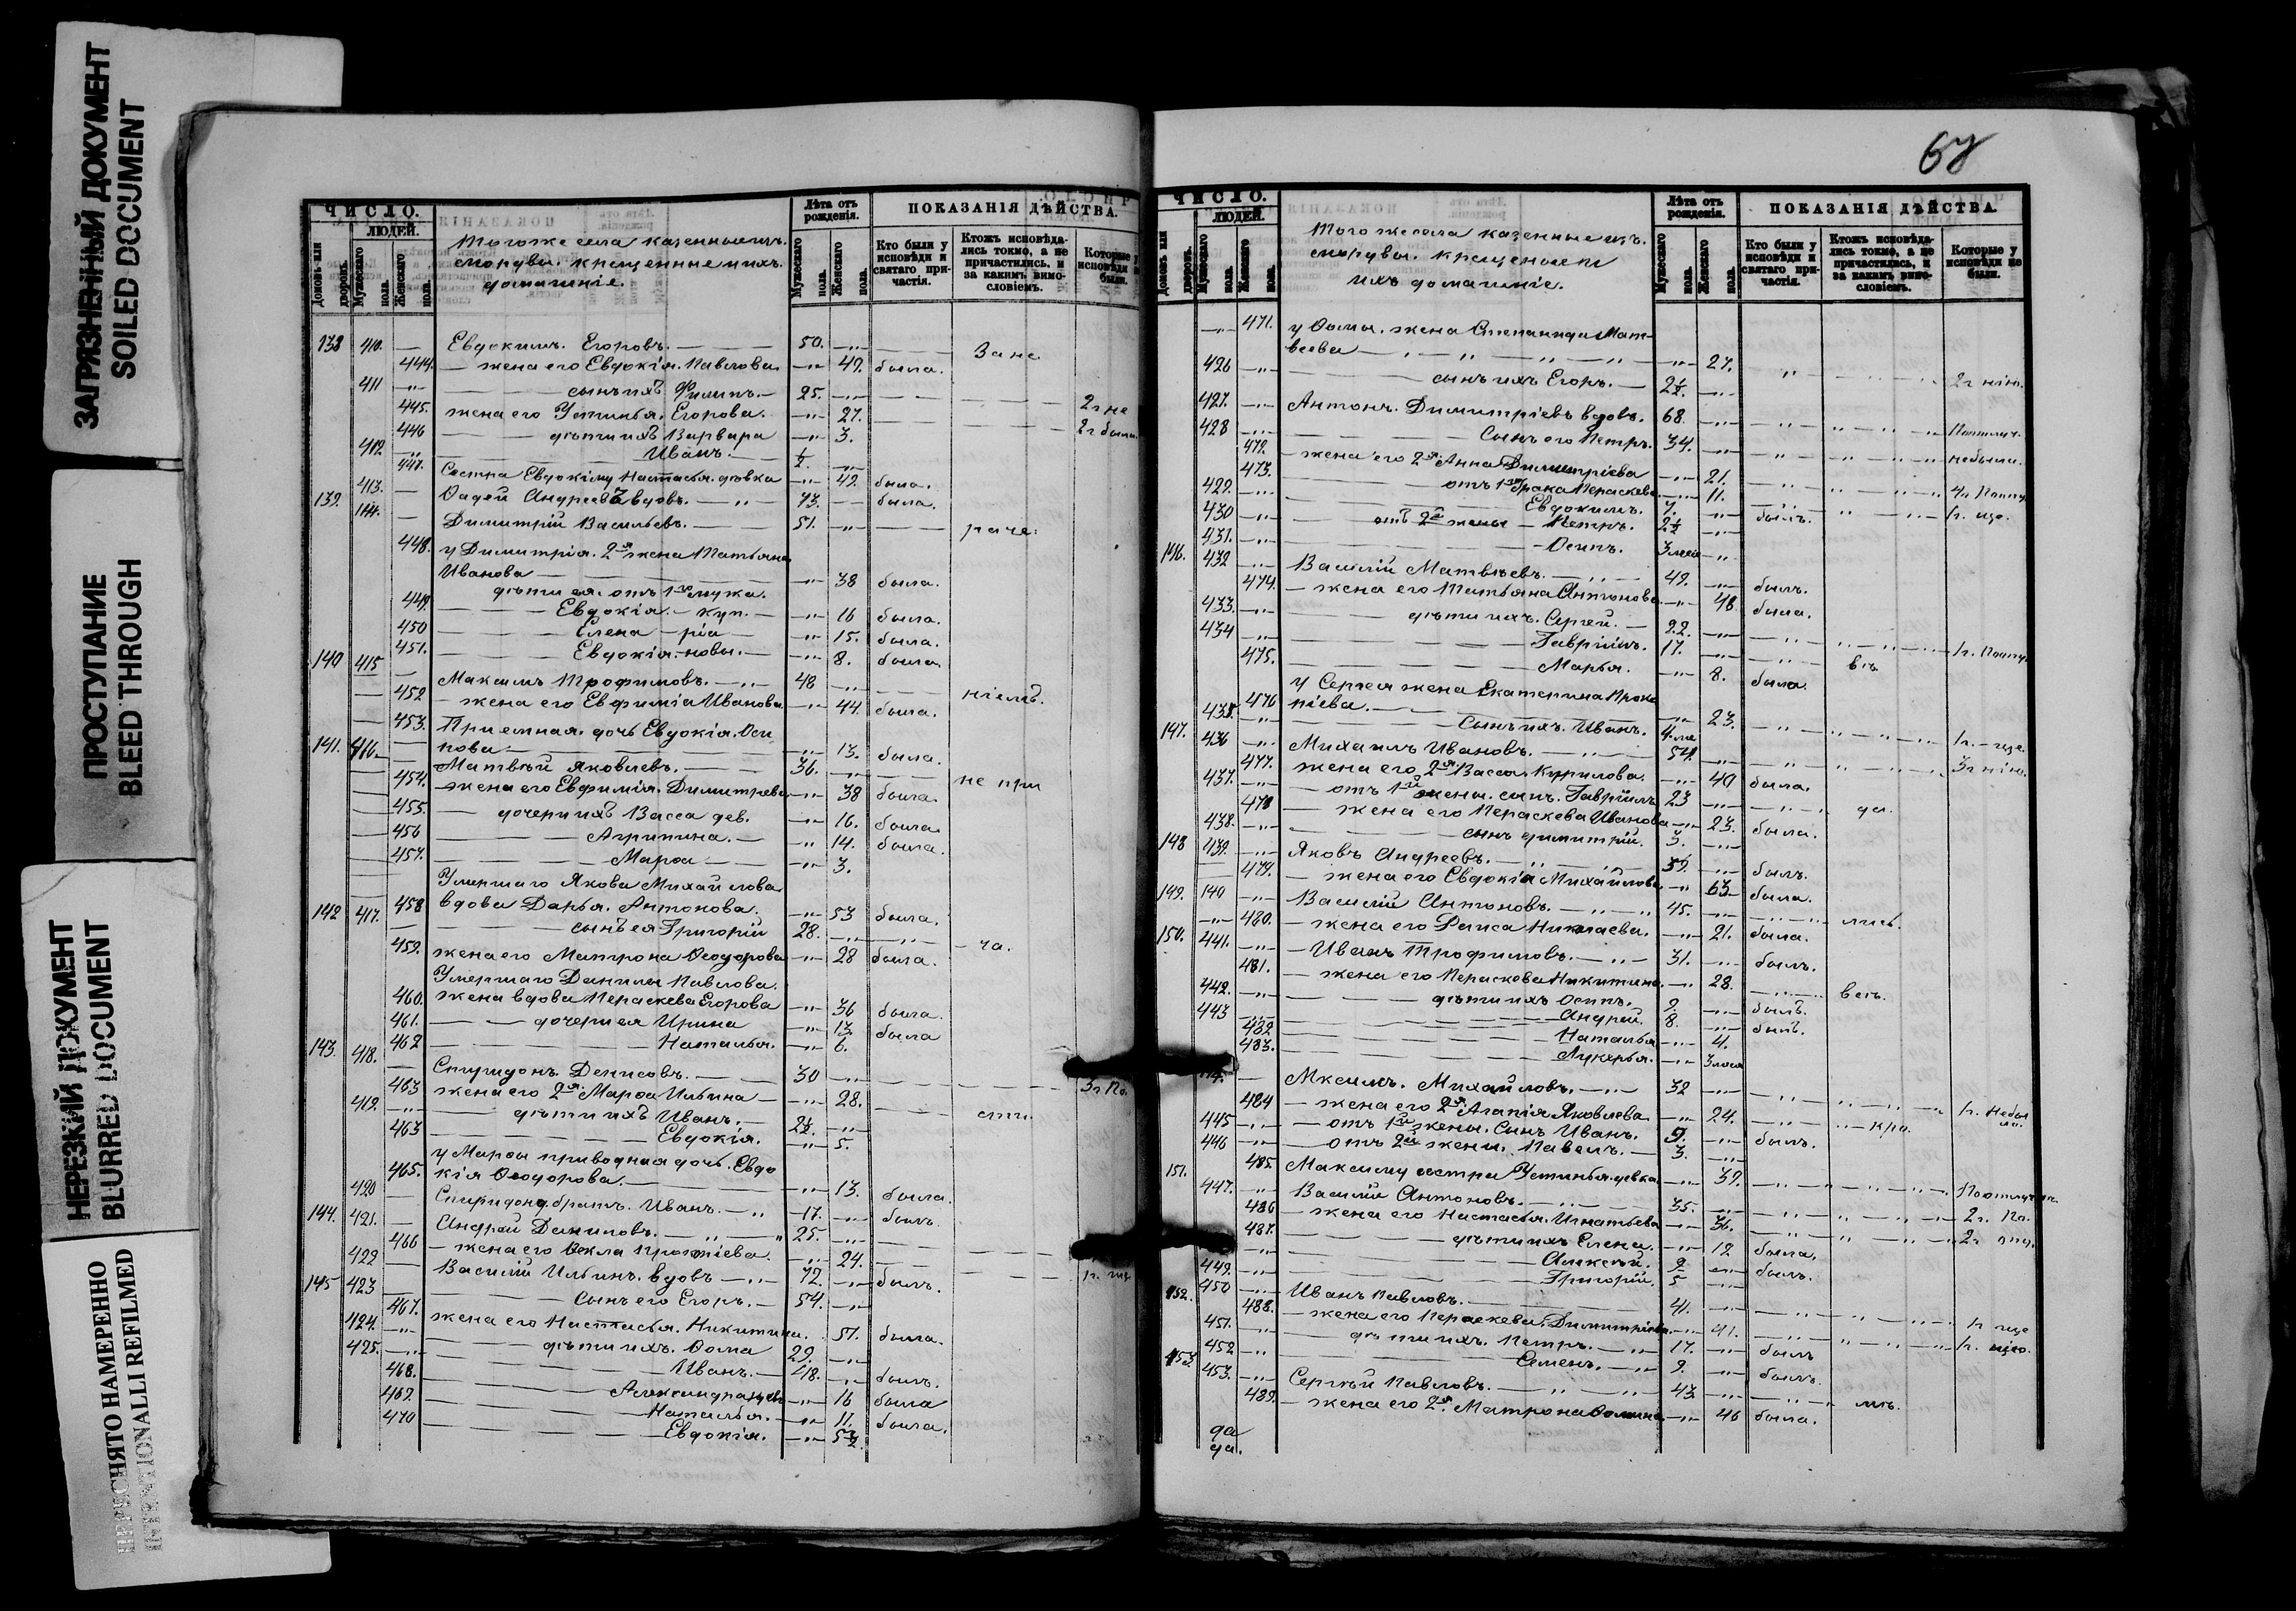 ЗАГРЯЗНЕННЫЙ ДОКУМЕНТ
SOILED DOCUMENT
ПРОСТУПАНИЕ
BLEED THROUGH
НЕРЕЗКИЙ ДОКУМЕНТ
BLURRED DOCUMENT
ПЕРЕСНЯТО НАМЕРЕННО
INTENTIONALLI REFILMED
ЧИСЛО.
ЛЮДЕЙ.
Домовъ или дворовъ.
Мужескаго пола.
Женскаго пола.
Тогоже села казенные изъ
мордвы крещенные и ихъ
домашніе.
Лѣта отъ рожденія.
Мужескаго пола.
Женскаго пола.
ПОКАЗАНІЯ ДѢЙСТВА.
Кто были у исповѣди и святаго причастія.
Ктожъ исповѣдались токмо, а не причастились, и за какимъ винословіемъ.
Которые у исповѣди не были.
138 410. — Евдокимъ Егоровъ. 50. За не
444. жена его Евдокія Павлова 49. была.
411 сынъ ихъ Филипъ. 25. 2 г не
445. жена его Устинья Егорова. 27. 2 г были
446 дѣти ихъ Варвара 3.
412 Иванъ. ½
447. Сестра Евдокіму Настасья дѣвка 42. была.
139. 413. Фадей Андреевъ вдовъ. 73. была.
414. Димитрій Васильевъ. 51. раче
448. у Димитрія 2я жена Татьяна
Иванова 38 была.
дѣти ея отъ 1го мужа.
449. Евдокія 16 была.
450 Елена 15. была.
451. Евдокія 8. была
140 415 Максимъ Трофимовъ. 48 ніемъ.
452 жена его Евфимія Иванова 44. была.
453. Пріемная дочь Евдокія Оси
пова 13. была.
141. 416. Матвѣй Яковлевъ. 36. не при
454. жена его Евфимія Димитрева 38 была.
455. дочери ихъ Васса дев. 16. была
456 Агрипина. 14. была.
457. Марфа 3.
Умершаго Якова Михайлова
458 вдова Дарья Антонова. 53 была.
142 417. сынъ ея Григорій 28. ча.
459. жена его Матрона Ѳеодорова 28 была.
Умершаго Данилы Павлова
460. жена вдова Пераскева Егорова 36 была.
461. дочери ея Ирина 13. была
462 Наталья. 6.
143. 418. Спиридонъ Денисовъ. 30 3 г По.
463 жена его 2я Марфа Ильина 28. сти.
419. дѣти ихъ Иванъ. 2½.
463 Евдокія. 5.
у Марфы приводная дочь Евдо
465. кія Ѳеодорова. 13. была.
420 Спиридону братъ Иванъ. 17. былъ.
144. 421. Андрей Даниловъ. 25.
466 жена его Ѳекла 24.
422 Василій Ильинъ вдовъ 72. былъ.
145 423 сынъ его Егоръ. 54.
467. жена его Настасья Никитина. 51. была.
424. дѣти ихъ Ѳома 29.
425. Иванъ. 18. былъ.
468. Александра 16 была
469. Наталья. 11. была.
470 Евдокія. 5½.
68
ЧИСЛО.
ЛЮДЕЙ.
Домовъ или дворовъ.
Мужескаго пола.
Женскаго пола.
Того же села казенные изъ
мордвы крещеные и
ихъ домашніе.
Лѣта отъ рожденія.
Мужескаго пола.
Женскаго пола.
ПОКАЗАНІЯ ДѢЙСТВА.
Кто были у исповѣди и святаго причастія.
Ктожъ исповѣдались токмо, а не причастились, и за какимъ винословіемъ.
Которые у исповѣди не были.
471. у Ѳомы жена Степанида Мат-
вѣева 27.
426 сынъ ихъ Егоръ. 2½.
427. Антонъ Димитріевъ вдовъ. 68.
428 Сынъ его Петръ. 34. небыли.
472. жена его 2я Анна Димитріева 21.
473. отъ 1го брака Пераскева 11.
429. Евдокимъ. 7. былъ.
430 отъ 2й жены Петръ. 2½
431. Осипъ. 3 меся
146. 432 Василій Матвѣевъ. 49. былъ.
474. жена его Татьяна Антонова 48. была.
433. дѣти ихъ Сергей. 22.
434 Гавріилъ. 17. въ
475. Марья. 8. была.
У Сергея жена Екатерина Проко
476 піева. 23.
435. Сынъ ихъ Иванъ. 4 ме
147. 436 Михаилъ Ивановъ. 54.
477. жена его 2я Васса Курилова. 40 была.
437. отъ 1й жены сынъ Гавріилъ 23 да.
478 жена его Пераскева Иванова 23. была.
438. сынъ Димитрій. 3.
148 439. Яковъ Андреевъ. 59. былъ.
479. жена его Евдокія Михайлова 63. была.
149. 440 Василій Антоновъ. 45. лись.
480. жена его Раиса Николаева. 21. была.
150. 441. Иванъ Трофимовъ. 31. былъ.
481. жена его Пераскева Никитина 28. всь.
442. дѣти ихъ Осипъ. 9. былъ.
443 Андрей. 8. былъ.
482 Наталья 4.
483. Лукерья. 3 меся
Мксимъ Михайловъ. 32
484 жена его 2я Агапія Яковлева 24. кра.
445 отъ 1й жены Сынъ Иванъ. 9. былъ.
446 отъ 2й жены Павелъ. 3.
485. Максиму сестра Устинья девка 39.
151. 447. Василій Антоновъ. 35.
486 жена его Настасья Игнатьева 36.
487. дѣти ихъ Елена. 12 была.
Алексѣй. 9 былъ.
449. Григорій. 5
152. 450 Иванъ Павловъ. 41.
488. жена его Пераскева Димитріева 41.
451. дѣти ихъ Петръ. 17. былъ
452 Семенъ. 9. былъ.
153 453. Сергѣй Павловъ. 43
489. жена его 2я Матрона Ѳомина 46 была.
да
да.